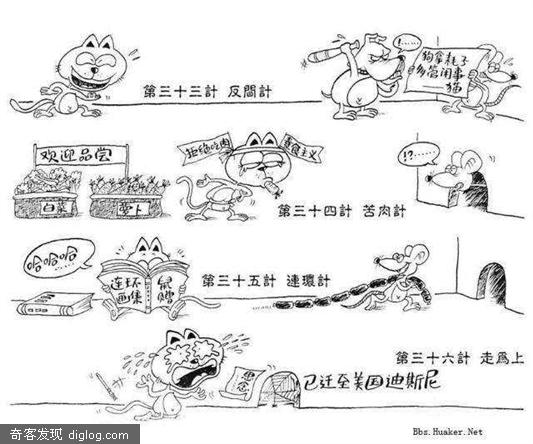 第三十三計 反間計
!……
狗拿耗子
多管闲事
——猫
欢迎品尝
白菜
萝卜
拒绝吃肉
素食主义
!?……
第三十四計 苦肉計
哈哈哈
……
连环
画集
鼠赠
第三十五計 連環計
第三十六計 走爲上
留念
已迁至美国迪斯尼
奇客发现 diglog.com
Bbs.Huaker.Net